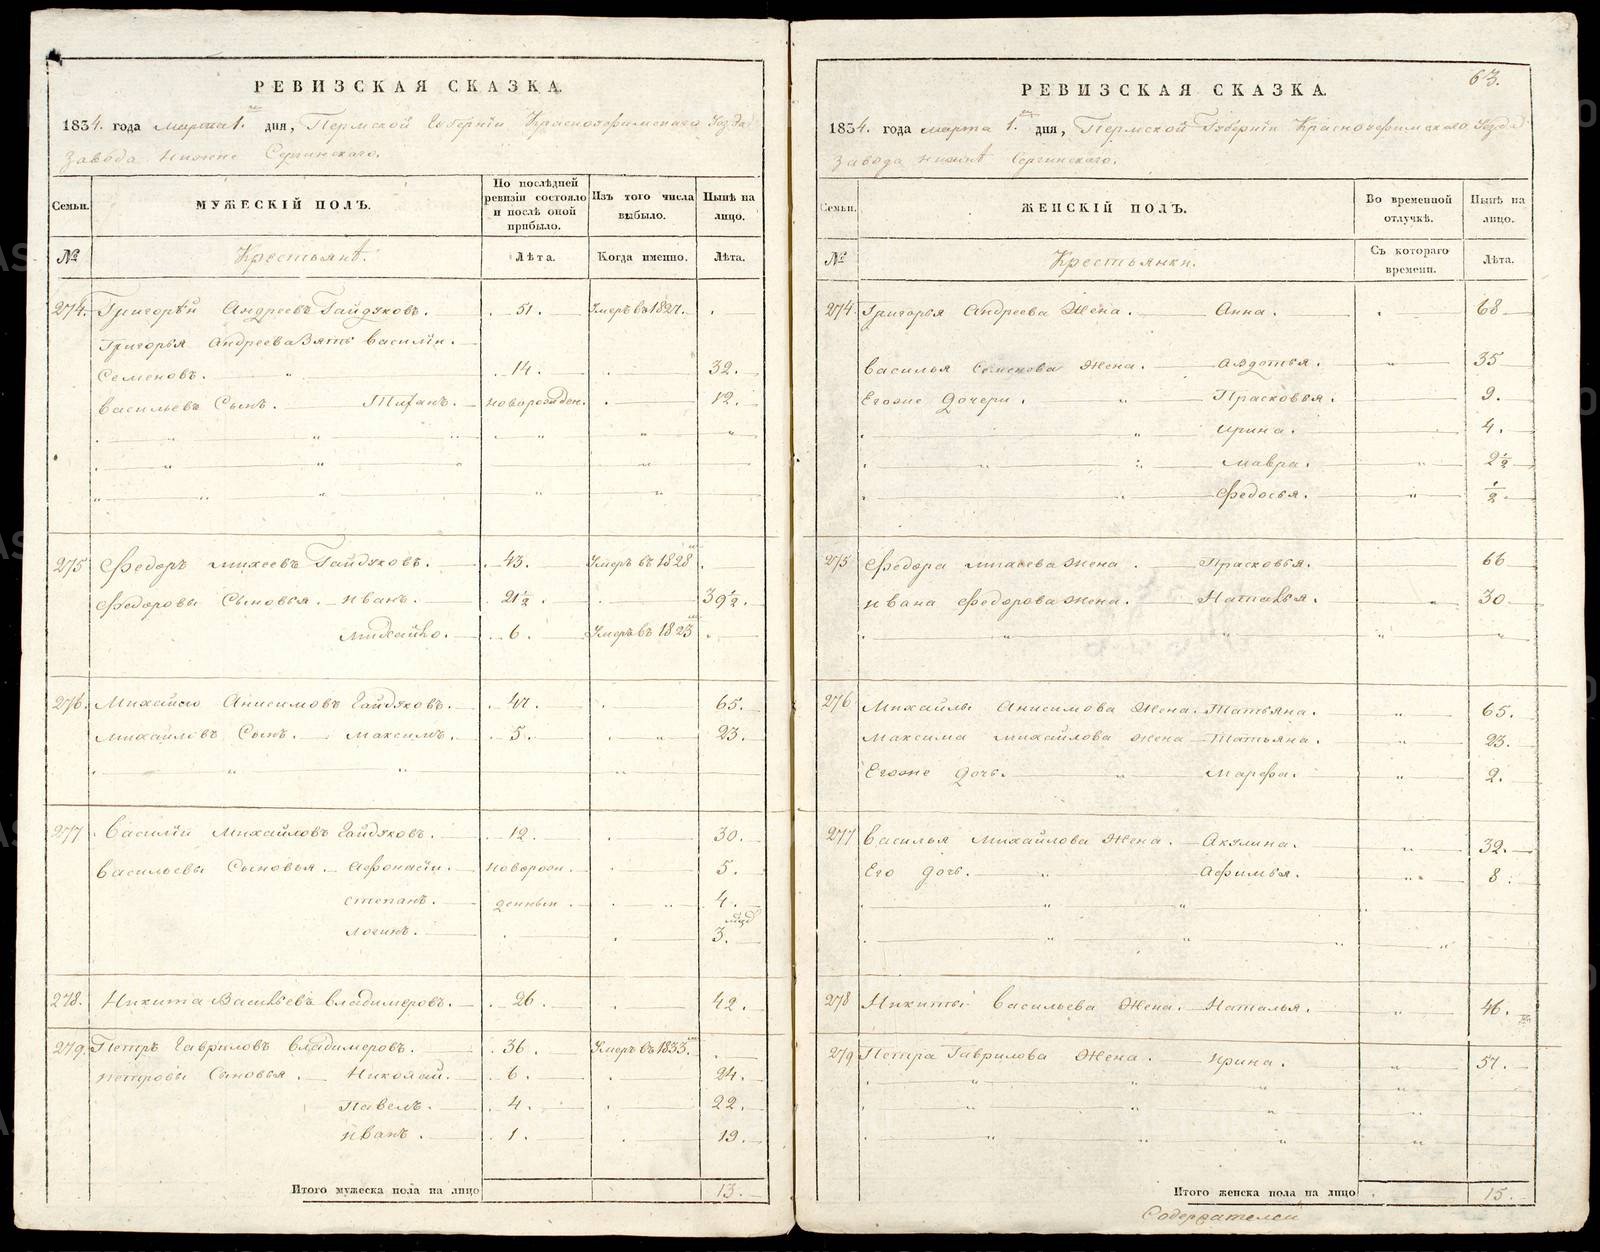 РЕВИЗСКАЯ СКАЗКА.
1834. года марта 1. дня, Пермской Губернiи Красноуфимскаго Уезда
Завода Нижне Сергинскаго.
Семьи. МУЖЕСКIЙ ПОЛЪ. По послѣдней ревизiи состояло и послѣ оной прибыло. Изъ того числа выбыло. Нынѣ на лицо.
№ Крестьянѣ. Лѣта. Когда именно. Лѣта.
274. Григорѣй Андреевъ Гайдуковъ. 51. Умеръ въ 1827.
Григорья Андреева Зять Василiй
Семеновъ. 14. 32.
Васильевъ Сынъ. Титанъ. новорожден. 12.
275 Федоръ Михеевъ Гайдуковъ. 43. Умеръ въ 1828
Федоровы Сыновья. Иванъ. 21½. 39½.
Михайло. 6. Умеръ въ 1823
276. Михайло Анисимовъ Гайдуковъ. 47. 65.
Михайловъ Сынъ. Максимъ. 5. 23.
277 Василiй Михайловъ Гайдуковъ. 12. 30.
Васильевы Сыновья. Афонасiй. новорож. 5.
степанъ. денныи. 4.
логинъ. 3.
278. Никита Васильевъ Владимеровъ. 26. 42.
279. Петръ Гавриловъ Владимеровъ. 36. Умеръ въ 1833.
Петровы Сыновья. Николай. 6. 24.
Павелъ. 4. 22.
Иванъ. 1. 19.
Итого мужеска пола на лицо 13.
63.
РЕВИЗСКАЯ СКАЗКА.
1834. года марта 1. дня, Пермской Губернiи Красноуфимскаго Уезда
Завода Нижнѣ Сергинскаго.
Семьи. ЖЕНСКIЙ ПОЛЪ. Во временной отлучкѣ. Нынѣ на лицо.
№ Крестьянки. Съ котораго времени. Лѣта.
274 Григорья Андреева Жена. Анна. 68
Василья Семенова Жена. Авдотья. 35
Егоже Дочери. Прасковья. 9.
Ирина. 4.
Мавра. 2½
Федосья. ½.
275 Федора Михеева Жена. Прасковья. 66
Ивана Федорова Жена. Наталья. 30
276 Михайлы Анисимова Жена. Татьяна. 65.
Максима Михайлова Жена Татьяна. 23.
Егоже Дочь. Марфа. 2.
277 Василья Михайлова Жена. Акулина. 32.
Его Дочь. Афимья. 8.
278 Никиты Васильева Жена. Наталья. 46.
279 Петра Гаврилова Жена. Ирина. 57.
Итого женска пола на лицо 15.
Содержателей